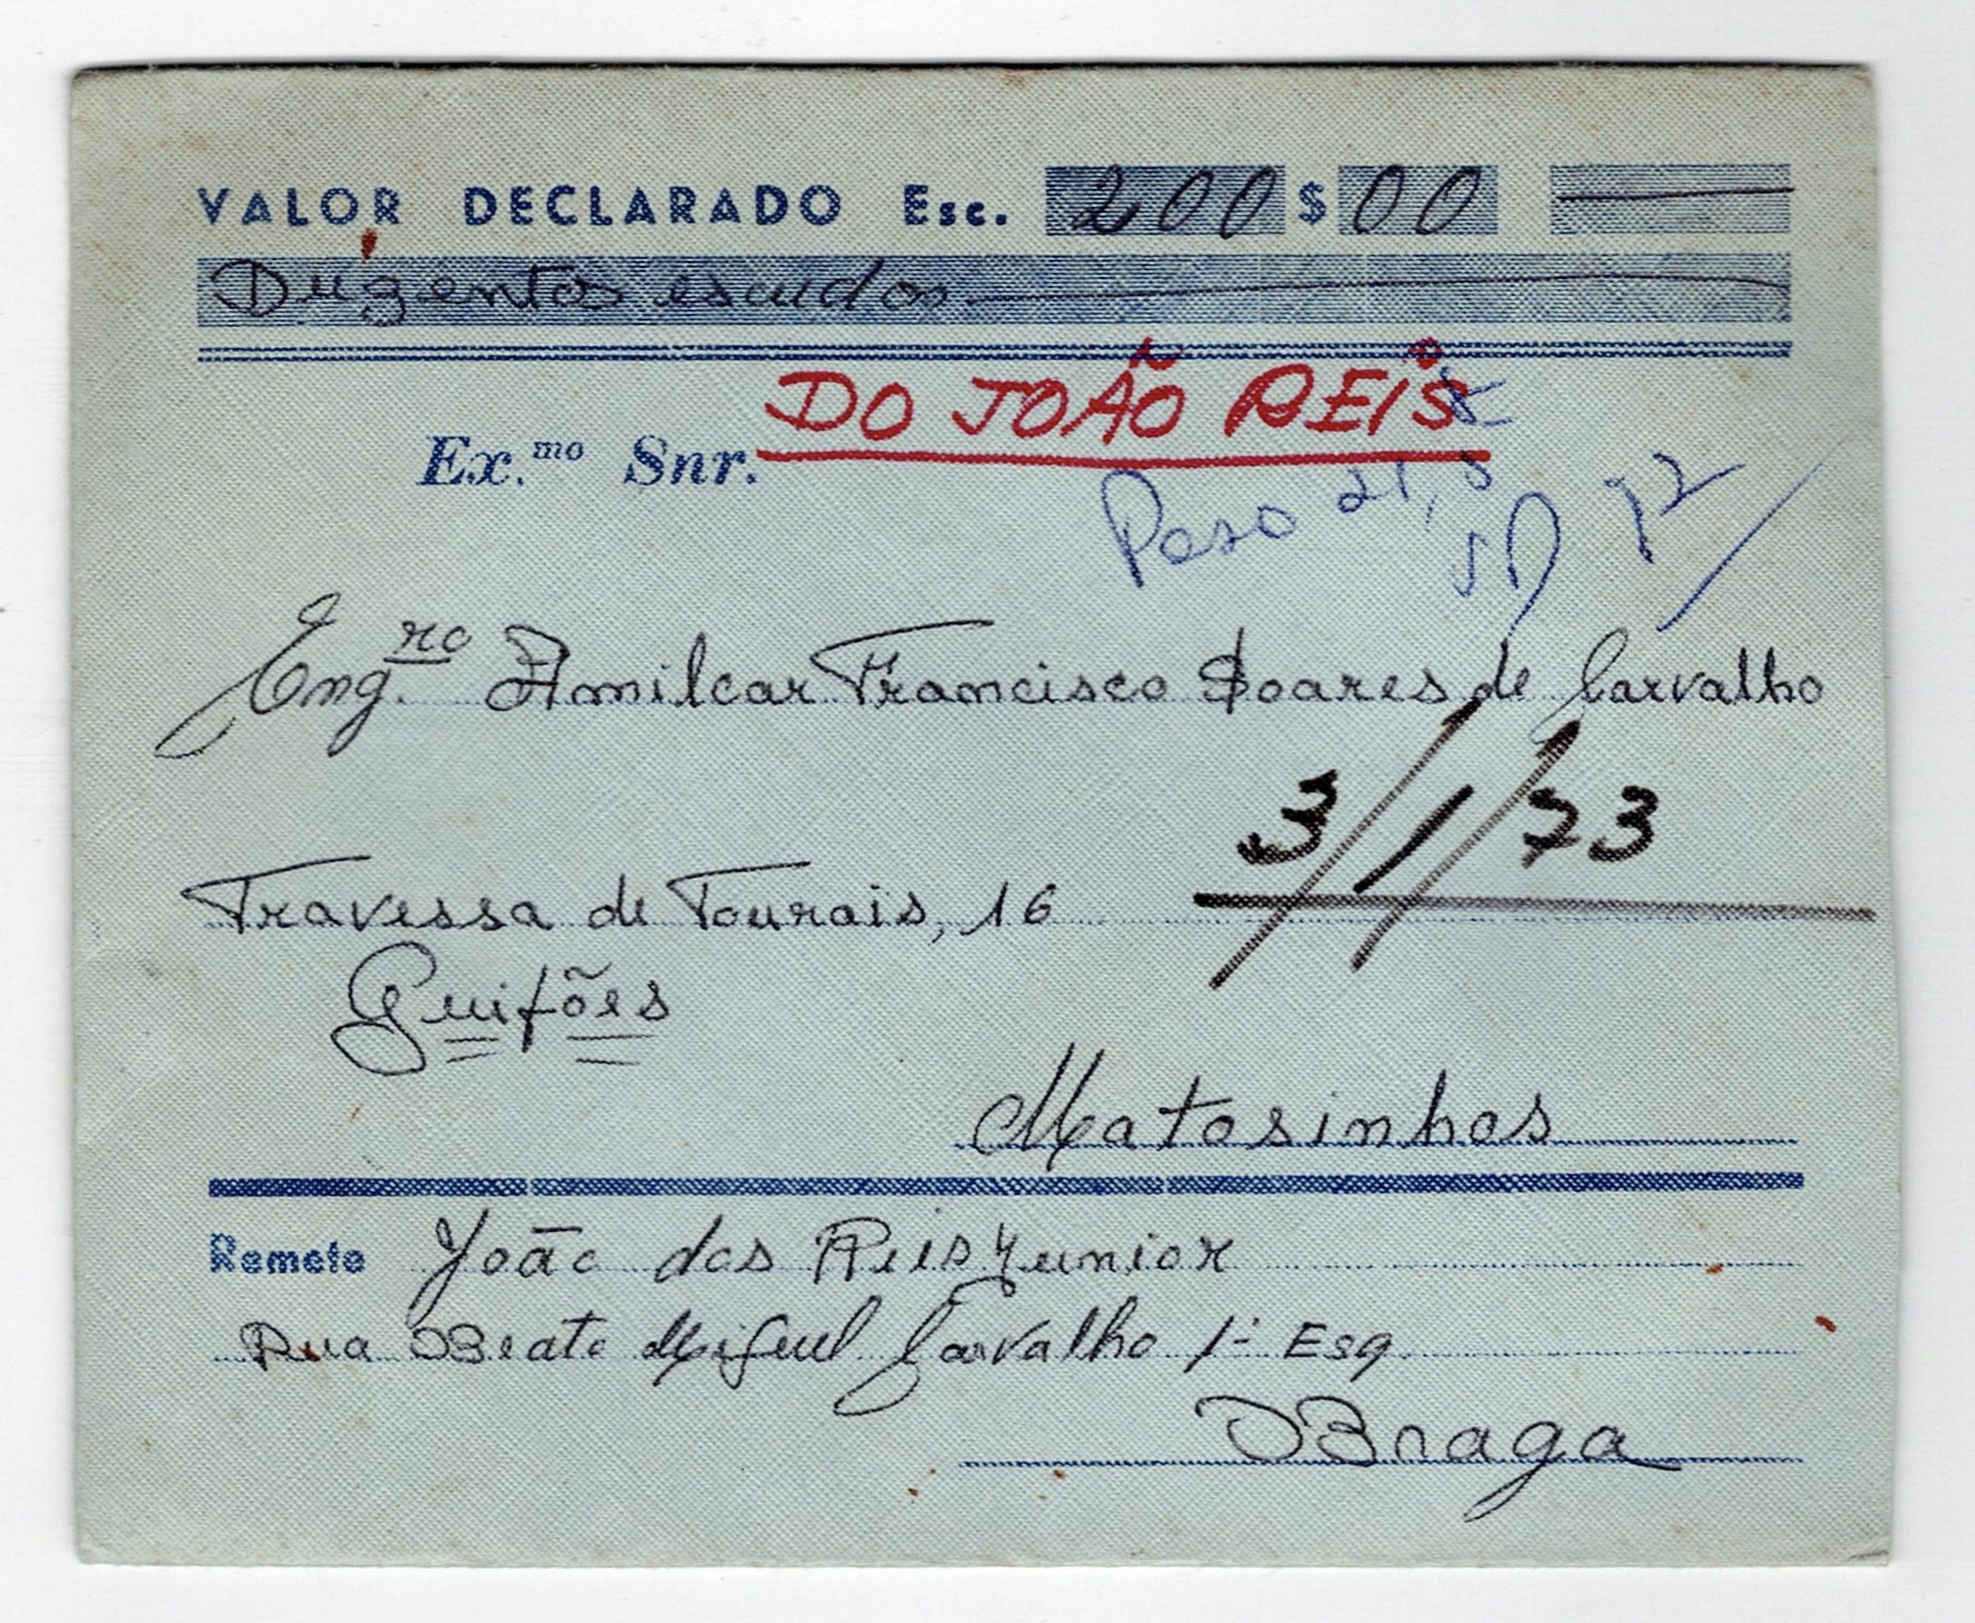 VALOR DECLARADO Esc. 200 $ 00
Duzentos escudos
DO JOÃO REIS
Ex.mo Snr.
Peso 21,5
Eng.ro Amilcar Francisco Soares de Carvalho
3/1/73
Travessa de Tourais, 16
Guifões
Matosinhos
Remete João dos Reis Junior
Rua Beato Miguel Carvalho 1º Esq.
Braga